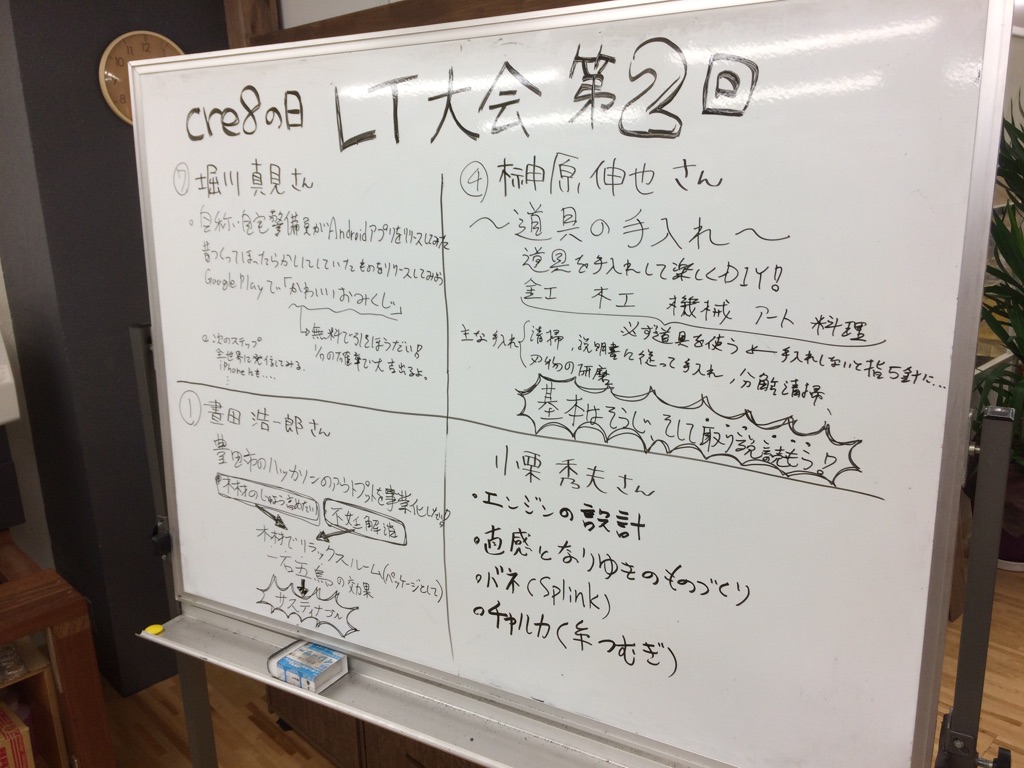 cre8の日 LT大会 第2回
⑦ 堀川 真見さん
・自称・自宅警備員がAndroidアプリをリリースしてみた
昔つくってほったらかしにしていたものをリリースしてみよう
Google Playで「かわいいおみくじ」
→無料で引きほうだい!
の確率で大吉出るよ。
次のステップ
全世界に発信してみる
iPhoneも....
④ 榊原 伸也 さん
〜道具の手入れ〜
道具を手入れして楽しくDIY!
金工 木工 機械 アート 料理
※道具を使う ← 手入れしないと指5針に…
主な手入れ 清掃、説明書に従って手入れ、分解清掃、
刃物の研磨
基本はそうじ そして取り説読もう!
① 晝田 浩一郎さん
豊田市のハッカソンのアウトプットを事業化したい!
木材のじゅよう高めたい 不妊解消
木材でリラックスルーム(パッケージとして)
一石五鳥の効果
サスティナブル
小栗 秀夫さん
・エンジンの設計
・直感となりゆきのものづくり
・バネ(Splink)
・チャルカ(糸つむぎ)